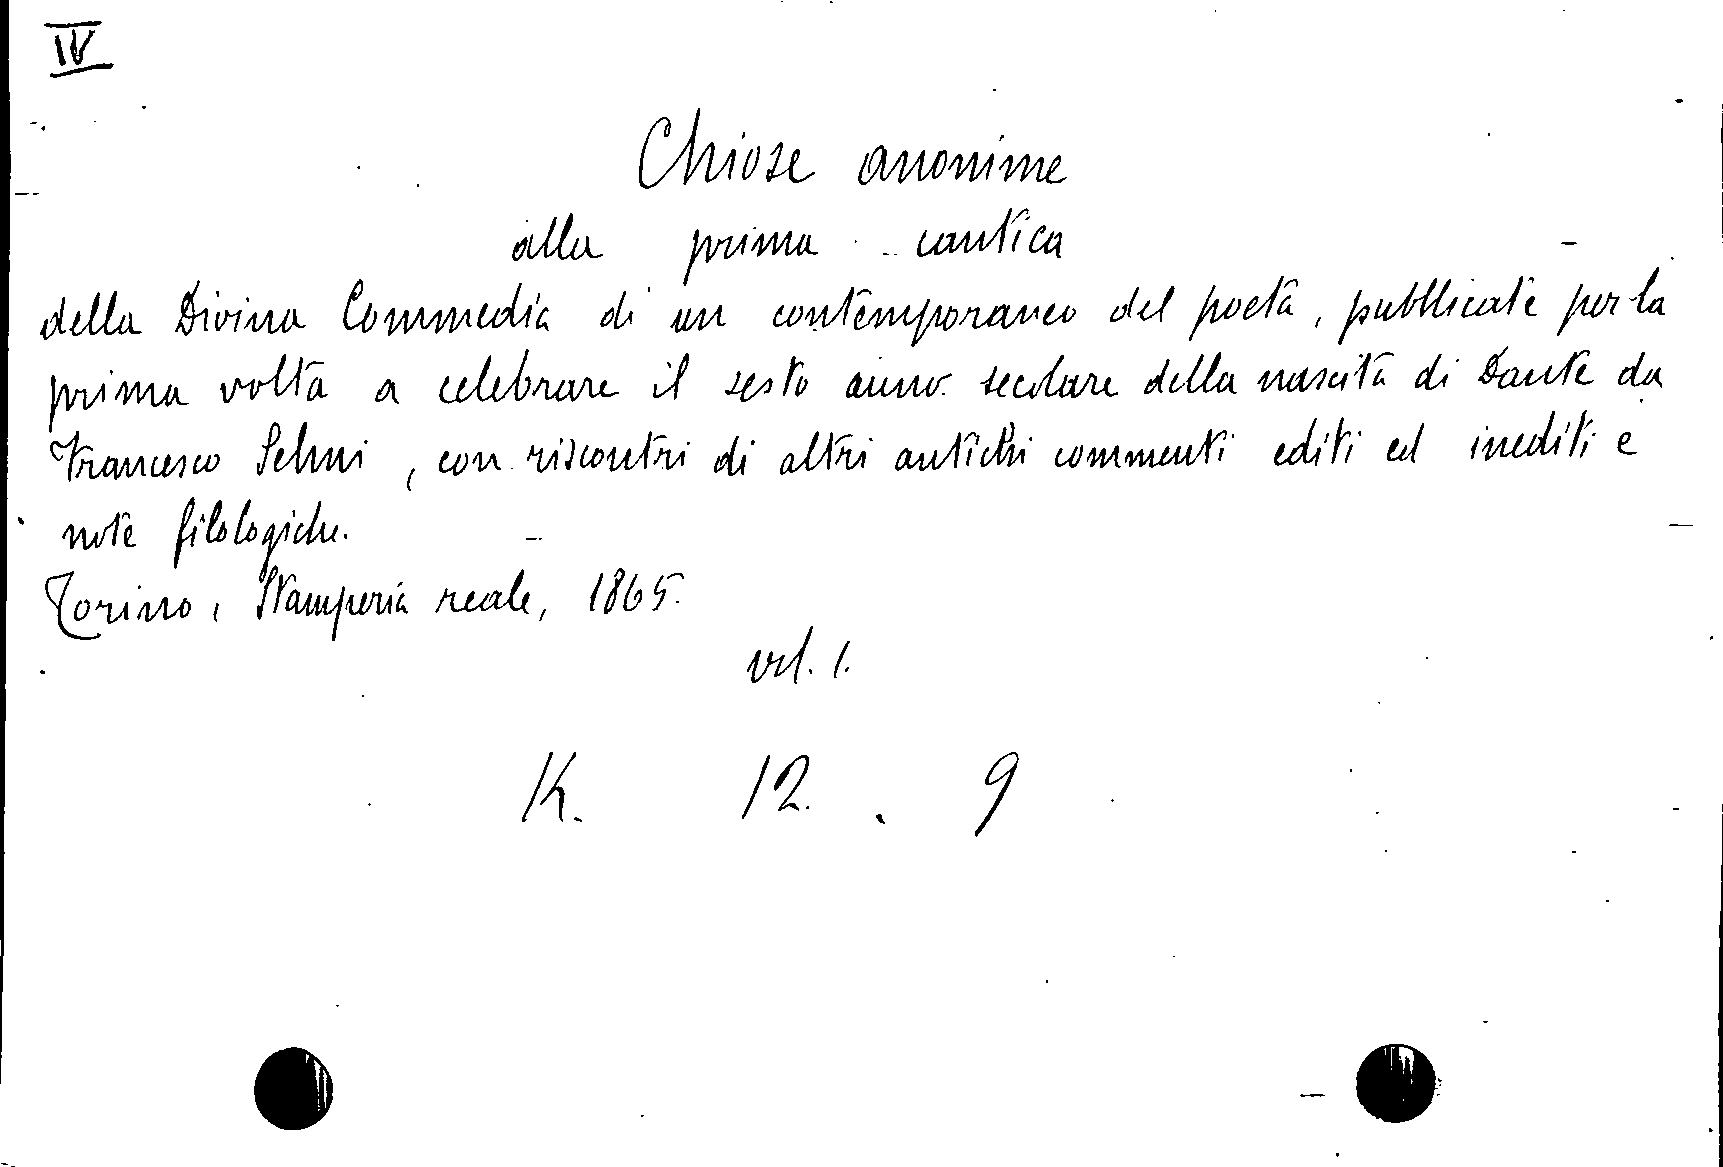 IV
Chiose anonime
alla prima cantica
della Divina Commedia di un contemporaneo del poeta, pubblicate per la
prima volta a celebrare il sesto anno secolare della nascita di Dante da
Francesco Selmi, con riscontri di altri antichi commenti editi ed inediti e
note filologiche.
Torino, Stamperia reale, 1865.
vol. 1.
K. 12. 9